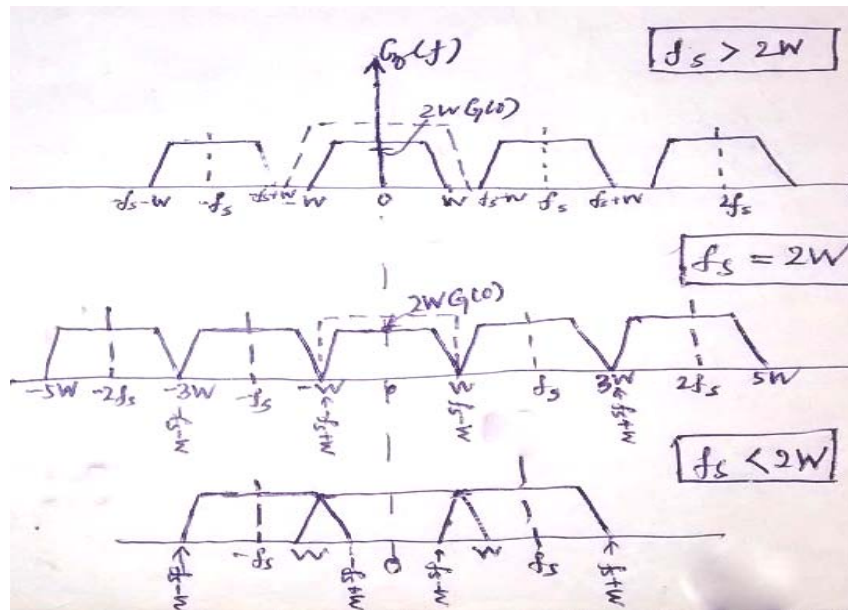 G₈(f)
fs > 2W
2WG(0)
-fs-W -fs -fs+W -W 0 W fs-W fs fs+W 2fs
fs = 2W
2WG(0)
-5W -2fs -3W -fs -W 0 W fs 3W 2fs 5W
-fs-W -fs+W fs-W fs+W
fs < 2W
-fs-W -fs W -fs+W 0 fs-W W fs fs+W